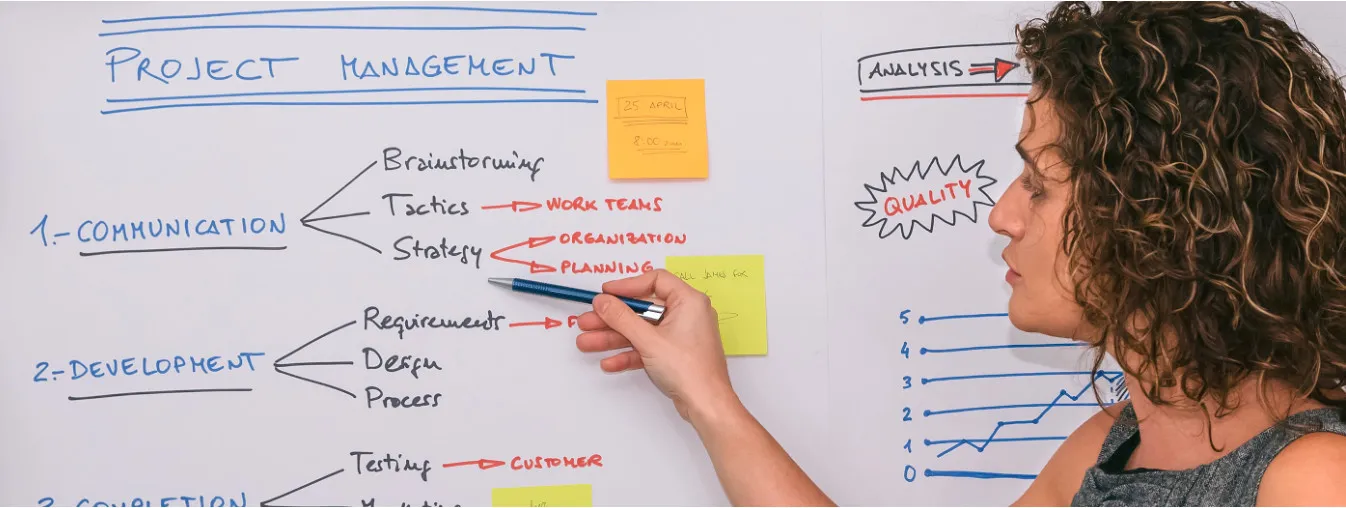 PROJECT MANAGEMENT
25 APRIL
8:00
1.- COMMUNICATION
Brainstorming
Tactics
WORK TEAMS
Strategy
ORGANIZATION
PLANNING
CALL JAMES FOR
2.- DEVELOPMENT
Requirements
Design
Process
3.- COMPLETION
Testing
CUSTOMER
ANALYSIS
QUALITY
5
4
3
2
1
0